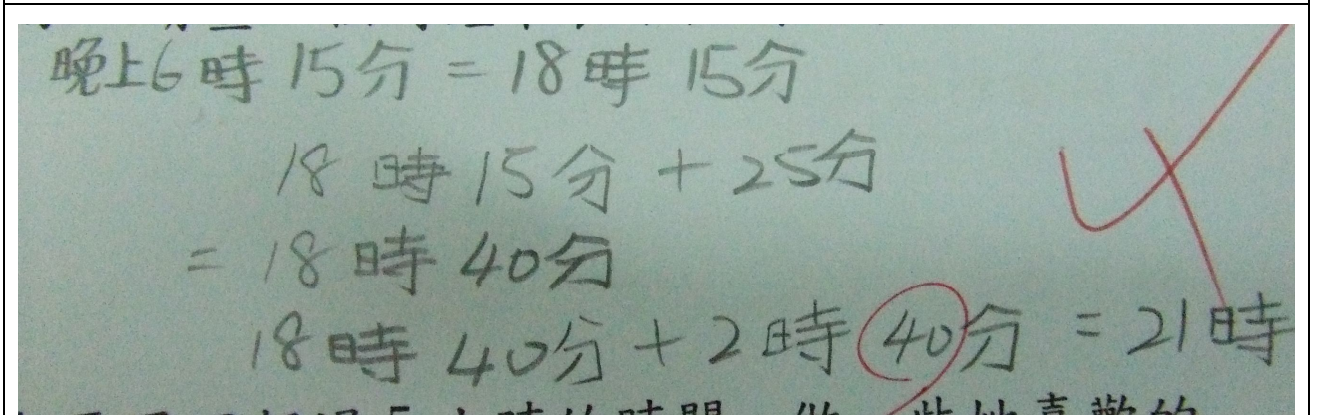 晚上6時15分=18時15分
18時15分+25分
=18時40分
18時40分+2時40分=21時